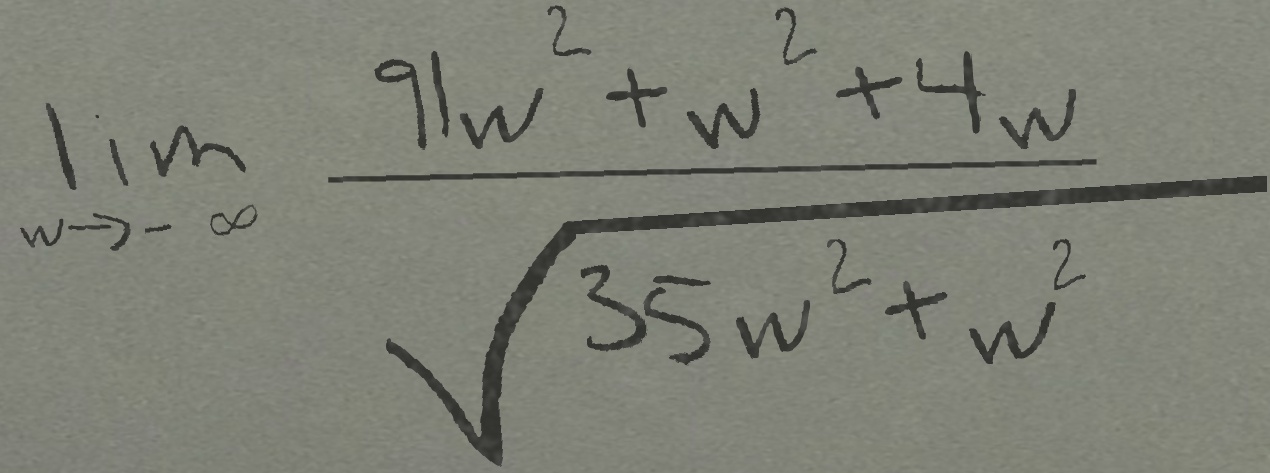 lim w→-∞ \frac{91w^2+w^2+4w}{\sqrt{35w^2+w^2}}